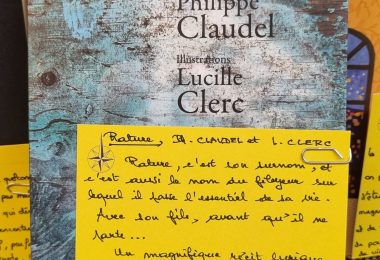 Philippe
Claudel
Illustrations
Lucille
Clerc
Rature, Ph. CLAUDEL et L. CLERC
Rature, c'est son surnom, et
c'est aussi le nom du fileyeur sur
lequel il passe l'essentiel de sa vie.
Avec son fils, avant qu'il ne
parte...
Un magnifique récit lyrique